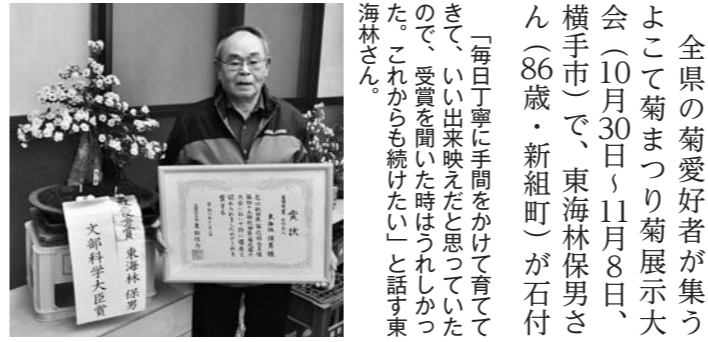 全県の菊愛好者が集う
よこて菊まつり菊展示大
会（10月30日～11月８日、
横手市）で、東海林保男さ
ん（86歳・新組町）が石付
「毎日丁寧に手間をかけて育てて
きて、いい出来映えだと思っていた
ので、受賞を聞いた時はうれしかっ
た。これからも続けたい」と話す東
海林さん。
賞状
東海林 保男
文部科学大臣賞